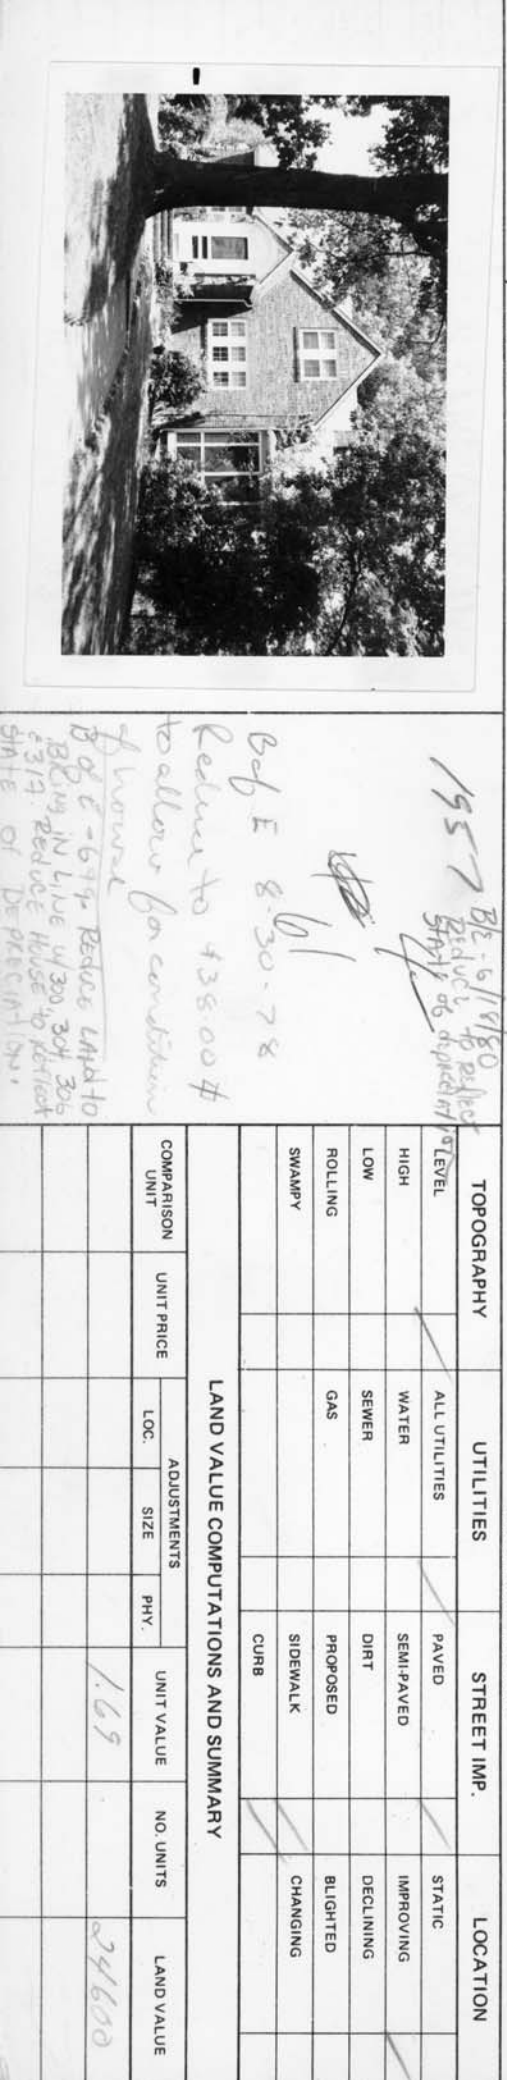 1957
B/E - 6/18/80
Reduce to reflect
State of depreciation
61
B of E 8-30-78
Reduce to 43800 #
to allow for condition
of house
B of E - 6 Reduce LAND to
BRING IN LINE W/ 300, 304, 306
REDUCE HOUSE TO REFLECT
STATE OF DEPRECIATION.
TOPOGRAPHY UTILITIES STREET IMP. LOCATION
LEVEL ALL UTILITIES PAVED STATIC
HIGH WATER SEMI-PAVED IMPROVING
LOW SEWER DIRT DECLINING
ROLLING GAS PROPOSED BLIGHTED
SWAMPY SIDEWALK CHANGING
CURB
LAND VALUE COMPUTATIONS AND SUMMARY
COMPARISON UNIT UNIT PRICE ADJUSTMENTS UNIT VALUE NO. UNITS LAND VALUE
LOC. SIZE PHY.
1.69 24600